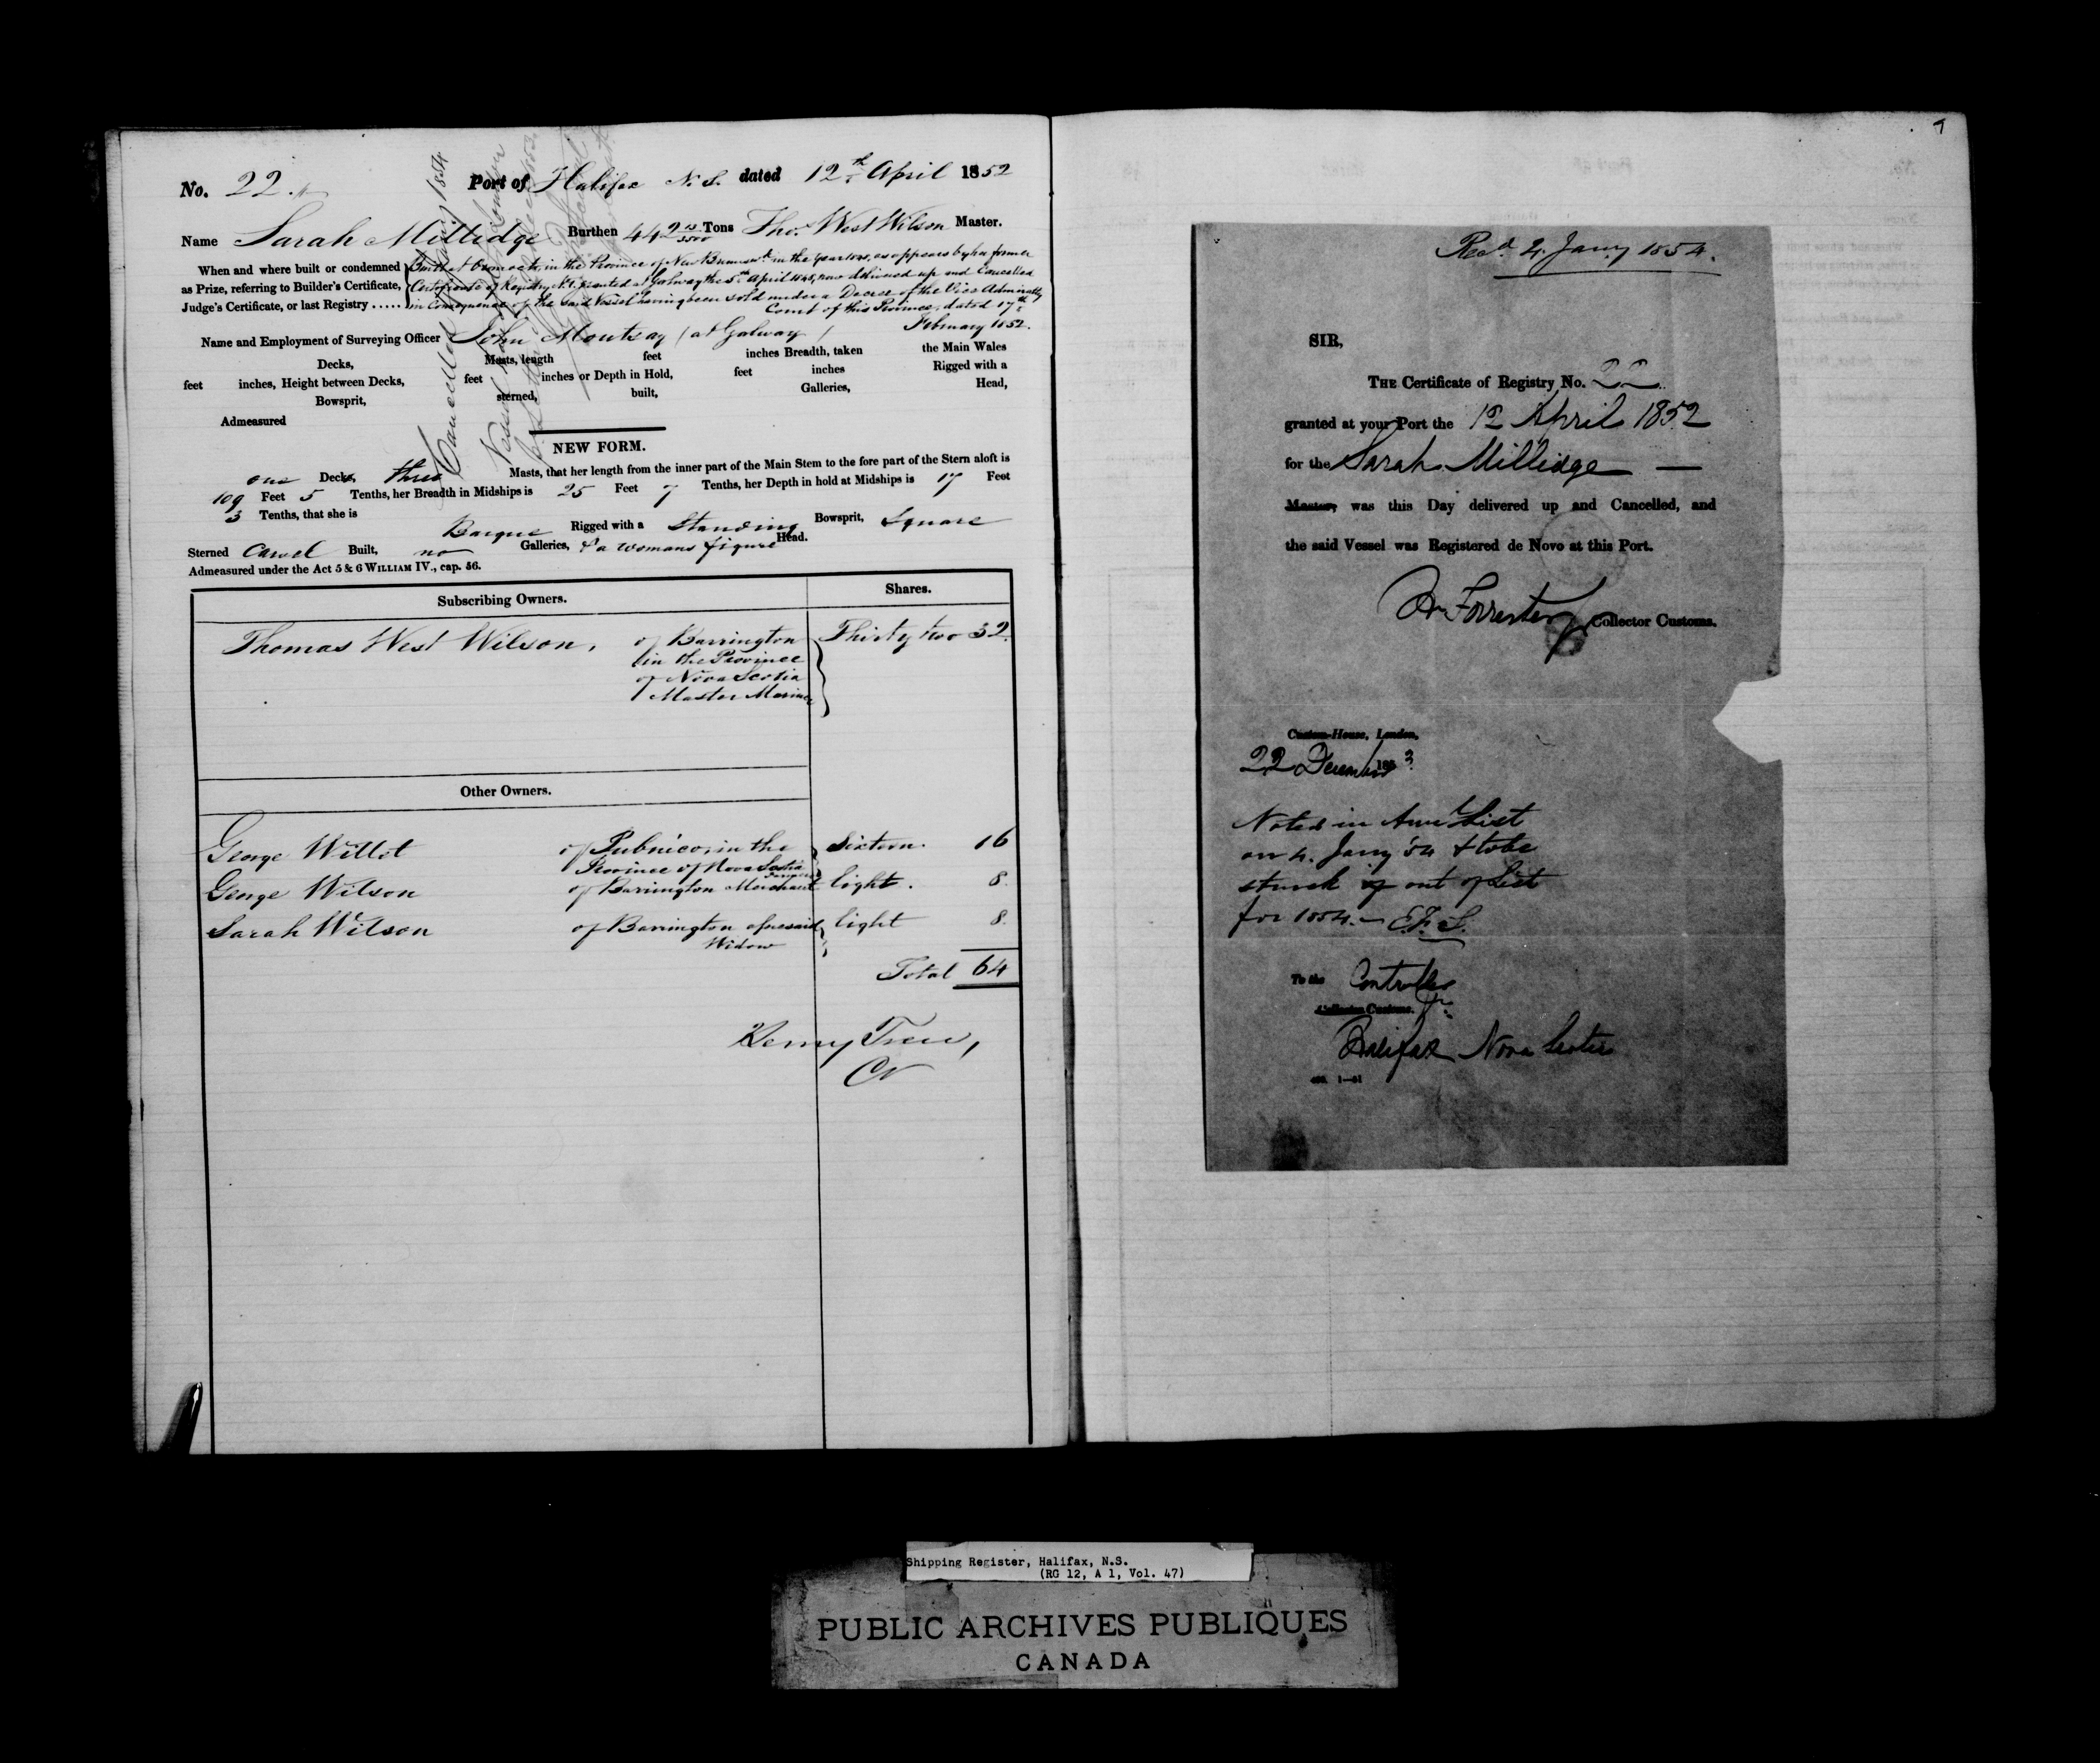 No. 22. Port of Halifax N.S. dated 12th April 1852
Name Sarah Millidge Burthen 442 13/3500 Tons Tho. West Wilson Master.
When and where built or condemned as Prize, referring to Builder's Certificate, Judge's Certificate, or last Registry .....
Built at in the Province of New Brunswk. in the Year as appears by her former
Certificate of Registry No. 1. granted at Galway the 5th April 1848, now delivered up and Cancelled
in Consequence of the said Vessel having been sold under a Decree of the Vice Admiralty
Court of this Province, dated 17th
February 1852.
Cancelled 1854
Vessel
Name and Employment of Surveying Officer John (at Galway)
Decks, Masts, length feet inches Breadth, taken the Main Wales
feet inches, Height between Decks, feet inches or Depth in Hold, feet inches Rigged with a
Bowsprit, sterned, built, Galleries, Head,
Admeasured
NEW FORM.
one Decks, three Masts, that her length from the inner part of the Main Stem to the fore part of the Stern aloft is
109 Feet 5 Tenths, her Breadth in Midships is 25 Feet 7 Tenths, her Depth in hold at Midships is 17 Feet
3 Tenths, that she is Barque Rigged with a Standing Bowsprit, Square
Sterned Carvel Built, no Galleries, & a womans figure Head.
Admeasured under the Act 5 & 6 WILLIAM IV., cap. 56.
Subscribing Owners. Shares.
Thomas West Wilson, of Barrington Thirty two 32
in the Province
of Nova Scotia
Master Mariner
Other Owners.
George Willet of Pubnico, in the Sixteen. 16
Province of Nova Scotia
George Wilson of Barrington Merchant Eight. 8.
Sarah Wilson of Barrington aforesaid Eight 8.
Widow
Total 64
Henry Trew,
Cr
Recd. 4. Jany 1854.
SIR,
THE Certificate of Registry No. 22
granted at your Port the 12 April 1852
for the Sarah Millidge —
Master, was this Day delivered up and Cancelled, and
the said Vessel was Registered de Novo at this Port.
Wm Forrester Collector Customs.
Custom-House, London,
22 December 1853
Noted in List
on 4. Jany 54 & to be
struck out of List
for 1854.— E.F.S.
To the Controller
Collector Customs.
Halifax Nova Scotia
Shipping Register, Halifax, N.S.
(RG 12, A 1, Vol. 47)
PUBLIC ARCHIVES PUBLIQUES
CANADA